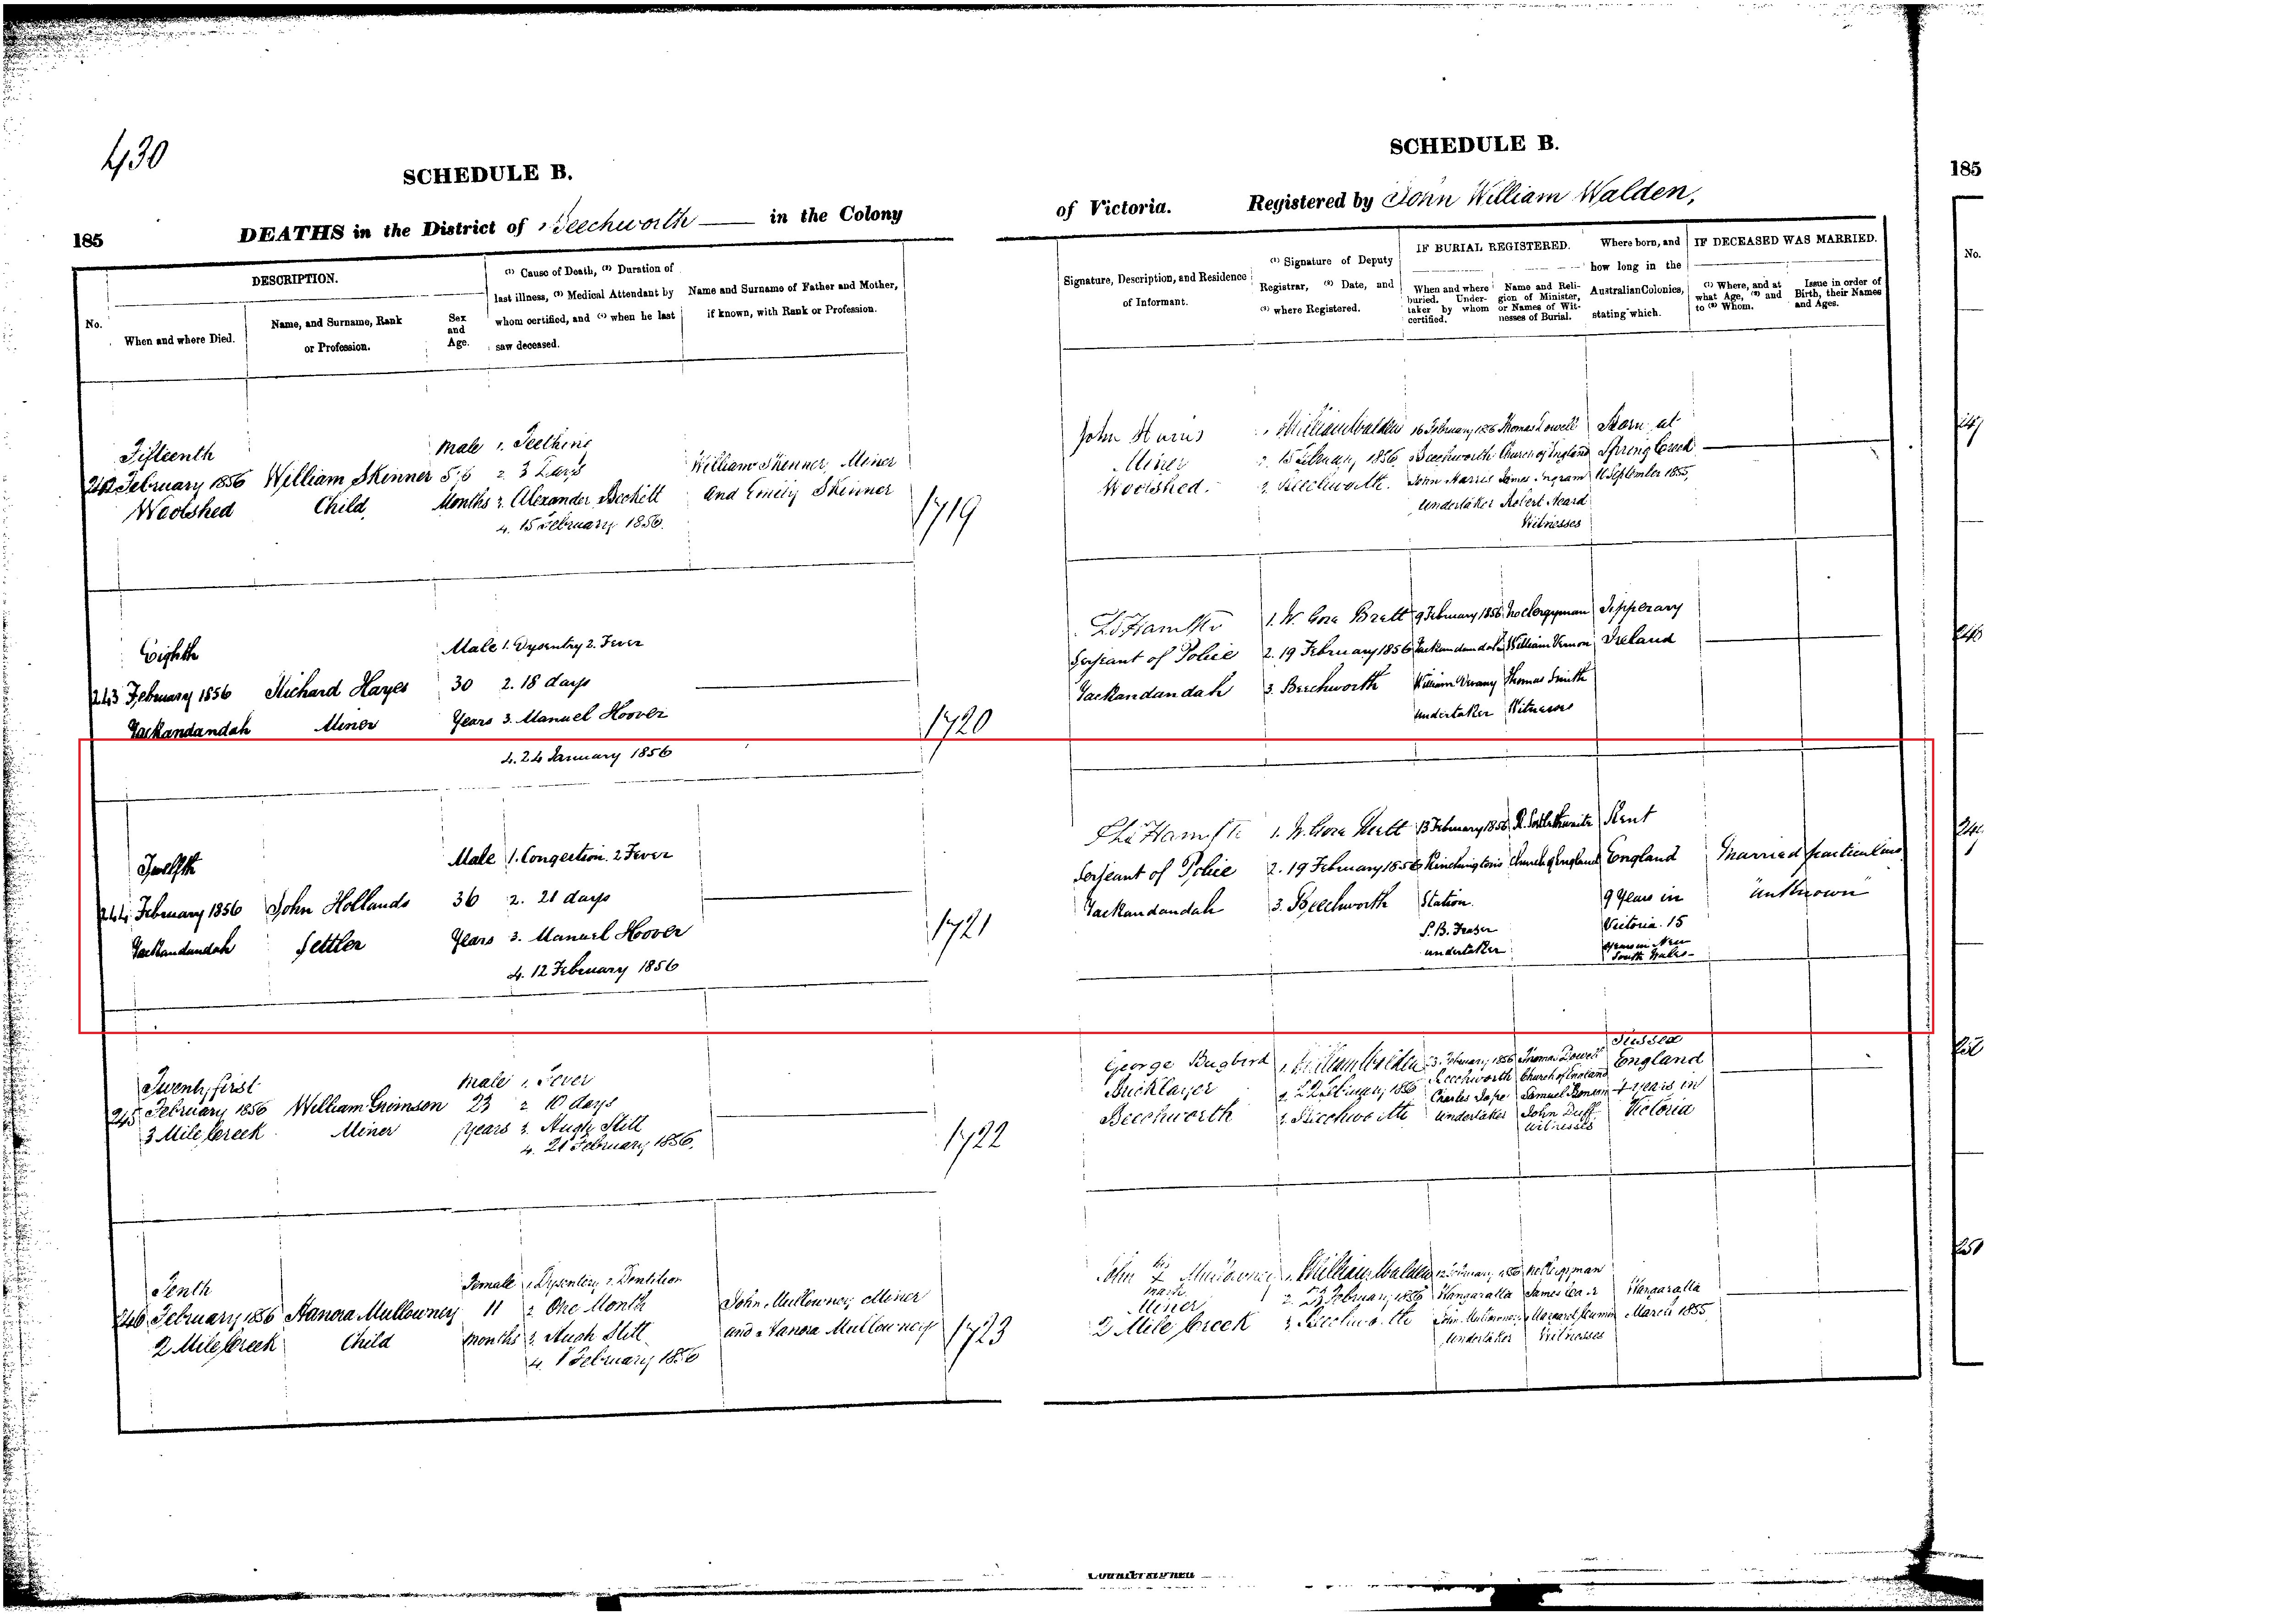 430
SCHEDULE B.
DEATHS in the District of Beechworth in the Colony
185
No.
DESCRIPTION.
When and where Died.
Name, and Surname, Rank
or Profession.
Sex
and
Age.
(1) Cause of Death, (2) Duration of
last illness, (3) Medical Attendant by
whom certified, and (4) when he last
saw deceased.
Name and Surname of Father and Mother,
if known, with Rank or Profession.
Fifteenth
242 February 1856
Woolshed
William Skinner
Child
Male
5
Months
1. Teething
2. 3 Days
3. Alexander
4. 15 February 1856.
William Skinner, Miner
and Emily Skinner
1719
Eighth
243 February 1856
Yackandandah
Richard Hayes
Miner
Male
30
Years
1. Dysentry 2. Fever
2. 18 days
3. Manuel Hoover
4. 24 January 1856
1720
Twelfth
244 February 1856
Yackandandah
John Hollands
Settler
Male
36
Years
1. Congestion. 2 Fever
2. 21 days
3. Manuel Hoover
4. 12 February 1856
1721
Twenty first
245 February 1856
3 Mile Creek
William Grimson
Miner
Male
23
years
1. Fever
2. 10 days
3. Hugh Stitt
4. 21 February 1856.
1722
Tenth
246 February 1856
2 Mile Creek
Hanora Mullowney
Child
Female
11
Months
1. Dysentery, 2. Dentition
2. One Month
3. Hugh Stitt
4. 1 February 1856
John Mullowney Miner
and Hanora Mullowney
1723
SCHEDULE B.
of Victoria. Registered by John William Walden,
Signature, Description, and Residence
of Informant.
(1) Signature of Deputy
Registrar, (2) Date, and
(3) where Registered.
IF BURIAL REGISTERED.
When and where
buried. Under-
taker by whom
certified.
Name and Reli-
gion of Minister,
or Names of Wit-
nesses of Burial.
Where born, and
how long in the
Australian Colonies,
stating which.
IF DECEASED WAS MARRIED.
(1) Where, and at
what Age, (2) and
to (3) Whom.
Issue in order of
Birth, their Names
and Ages.
John Harris
Miner
Woolshed.
1. J William Walden
2. 15 February 1856
3. Beechworth.
16 February 1856
Beechworth
John Harris
Undertaker
Thomas Lowell
Church of England
James Ingram
Robert Heard
Witnesses
Born at
Spring Creek
11 September 1855,
Serjeant of Police
Yackandandah
1. W. Gore Brett
2. 19 February 1856
3. Beechworth
9 February 1856
Yackandandah
William
Undertaker
No Clergyman
William Vernon
Thomas Smith
Witnesses
Tipperary
Ireland
Serjeant of Police
Yackandandah
1. W. Gore Brett
2. 19 February 1856
3. Beechworth
13 February 1856
Kinchington's
Station.
S. B. Fraser
undertaker
Church of England
Kent
England
9 Years in
Victoria. 15
years in New
South Wales
Married particulars
unknown
George Bugbird
Bricklayer
Beechworth
1. J William Walden
3. Beechworth
Beechworth
undertaker
Thomas Lowell
Church of England
Samuel
John Duff
Witnesses
Sussex
England
4 years in
Victoria
John his X mark Mullowney
Miner
2 Mile Creek
1. J William Walden
3. Beechworth
Wangaratta
John Mullowney
Undertaker
No Clergyman
Margaret
Witnesses
Wangaratta
March 1855
185
No.